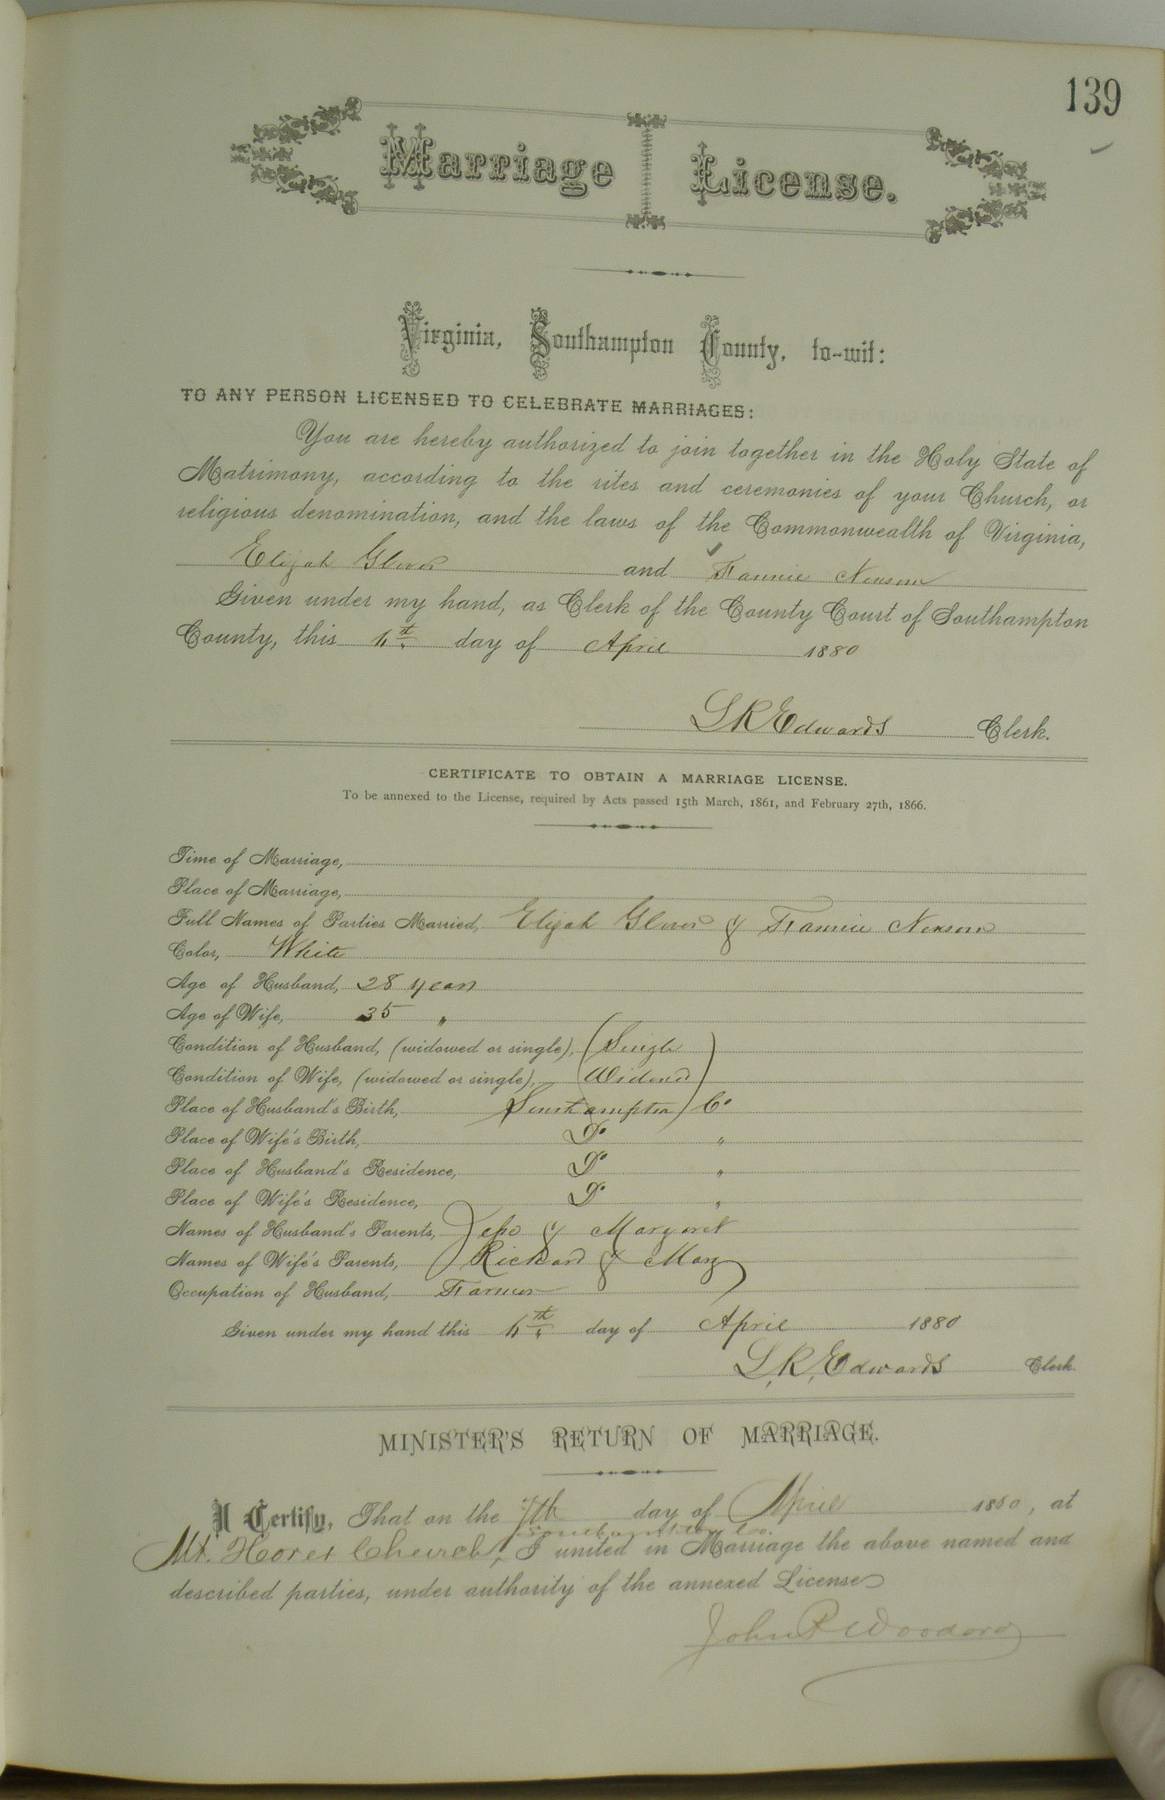 139
Marriage License.
Virginia, Southampton County, to-wit:
TO ANY PERSON LICENSED TO CELEBRATE MARRIAGES:
You are hereby authorized to join together in the Holy State of
Matrimony, according to the rites and ceremonies of your Church, or
religious denomination, and the laws of the Commonwealth of Virginia,
Elijah Glover and Fannie Newsom
Given under my hand, as Clerk of the County Court of Southampton
County, this day of April 1880
L R Edwards Clerk.
CERTIFICATE TO OBTAIN A MARRIAGE LICENSE.
To be annexed to the License, required by Acts passed 15th March, 1861, and February 27th, 1866.
Time of Marriage,
Place of Marriage,
Full Names of Parties Married, Elijah Glover & Fannie Newsom
Color, White
Age of Husband, 28 years
Age of Wife, 35 "
Condition of Husband, (widowed or single), Single
Condition of Wife, (widowed or single), Widowed
Place of Husband's Birth, Southampton Co
Place of Wife's Birth, Do "
Place of Husband's Residence, Do "
Place of Wife's Residence, Do "
Names of Husband's Parents, & Margaret
Names of Wife's Parents, Richard & Mary
Occupation of Husband, Farmer
Given under my hand this day of April 1880
L. R. Edwards Clerk.
MINISTER'S RETURN OF MARRIAGE.
I Certify, That on the 7th day of April 1880, at
Southampton Co.
Mt. Horeb Church, I united in Marriage the above named and
described parties, under authority of the annexed License
John R Woodard